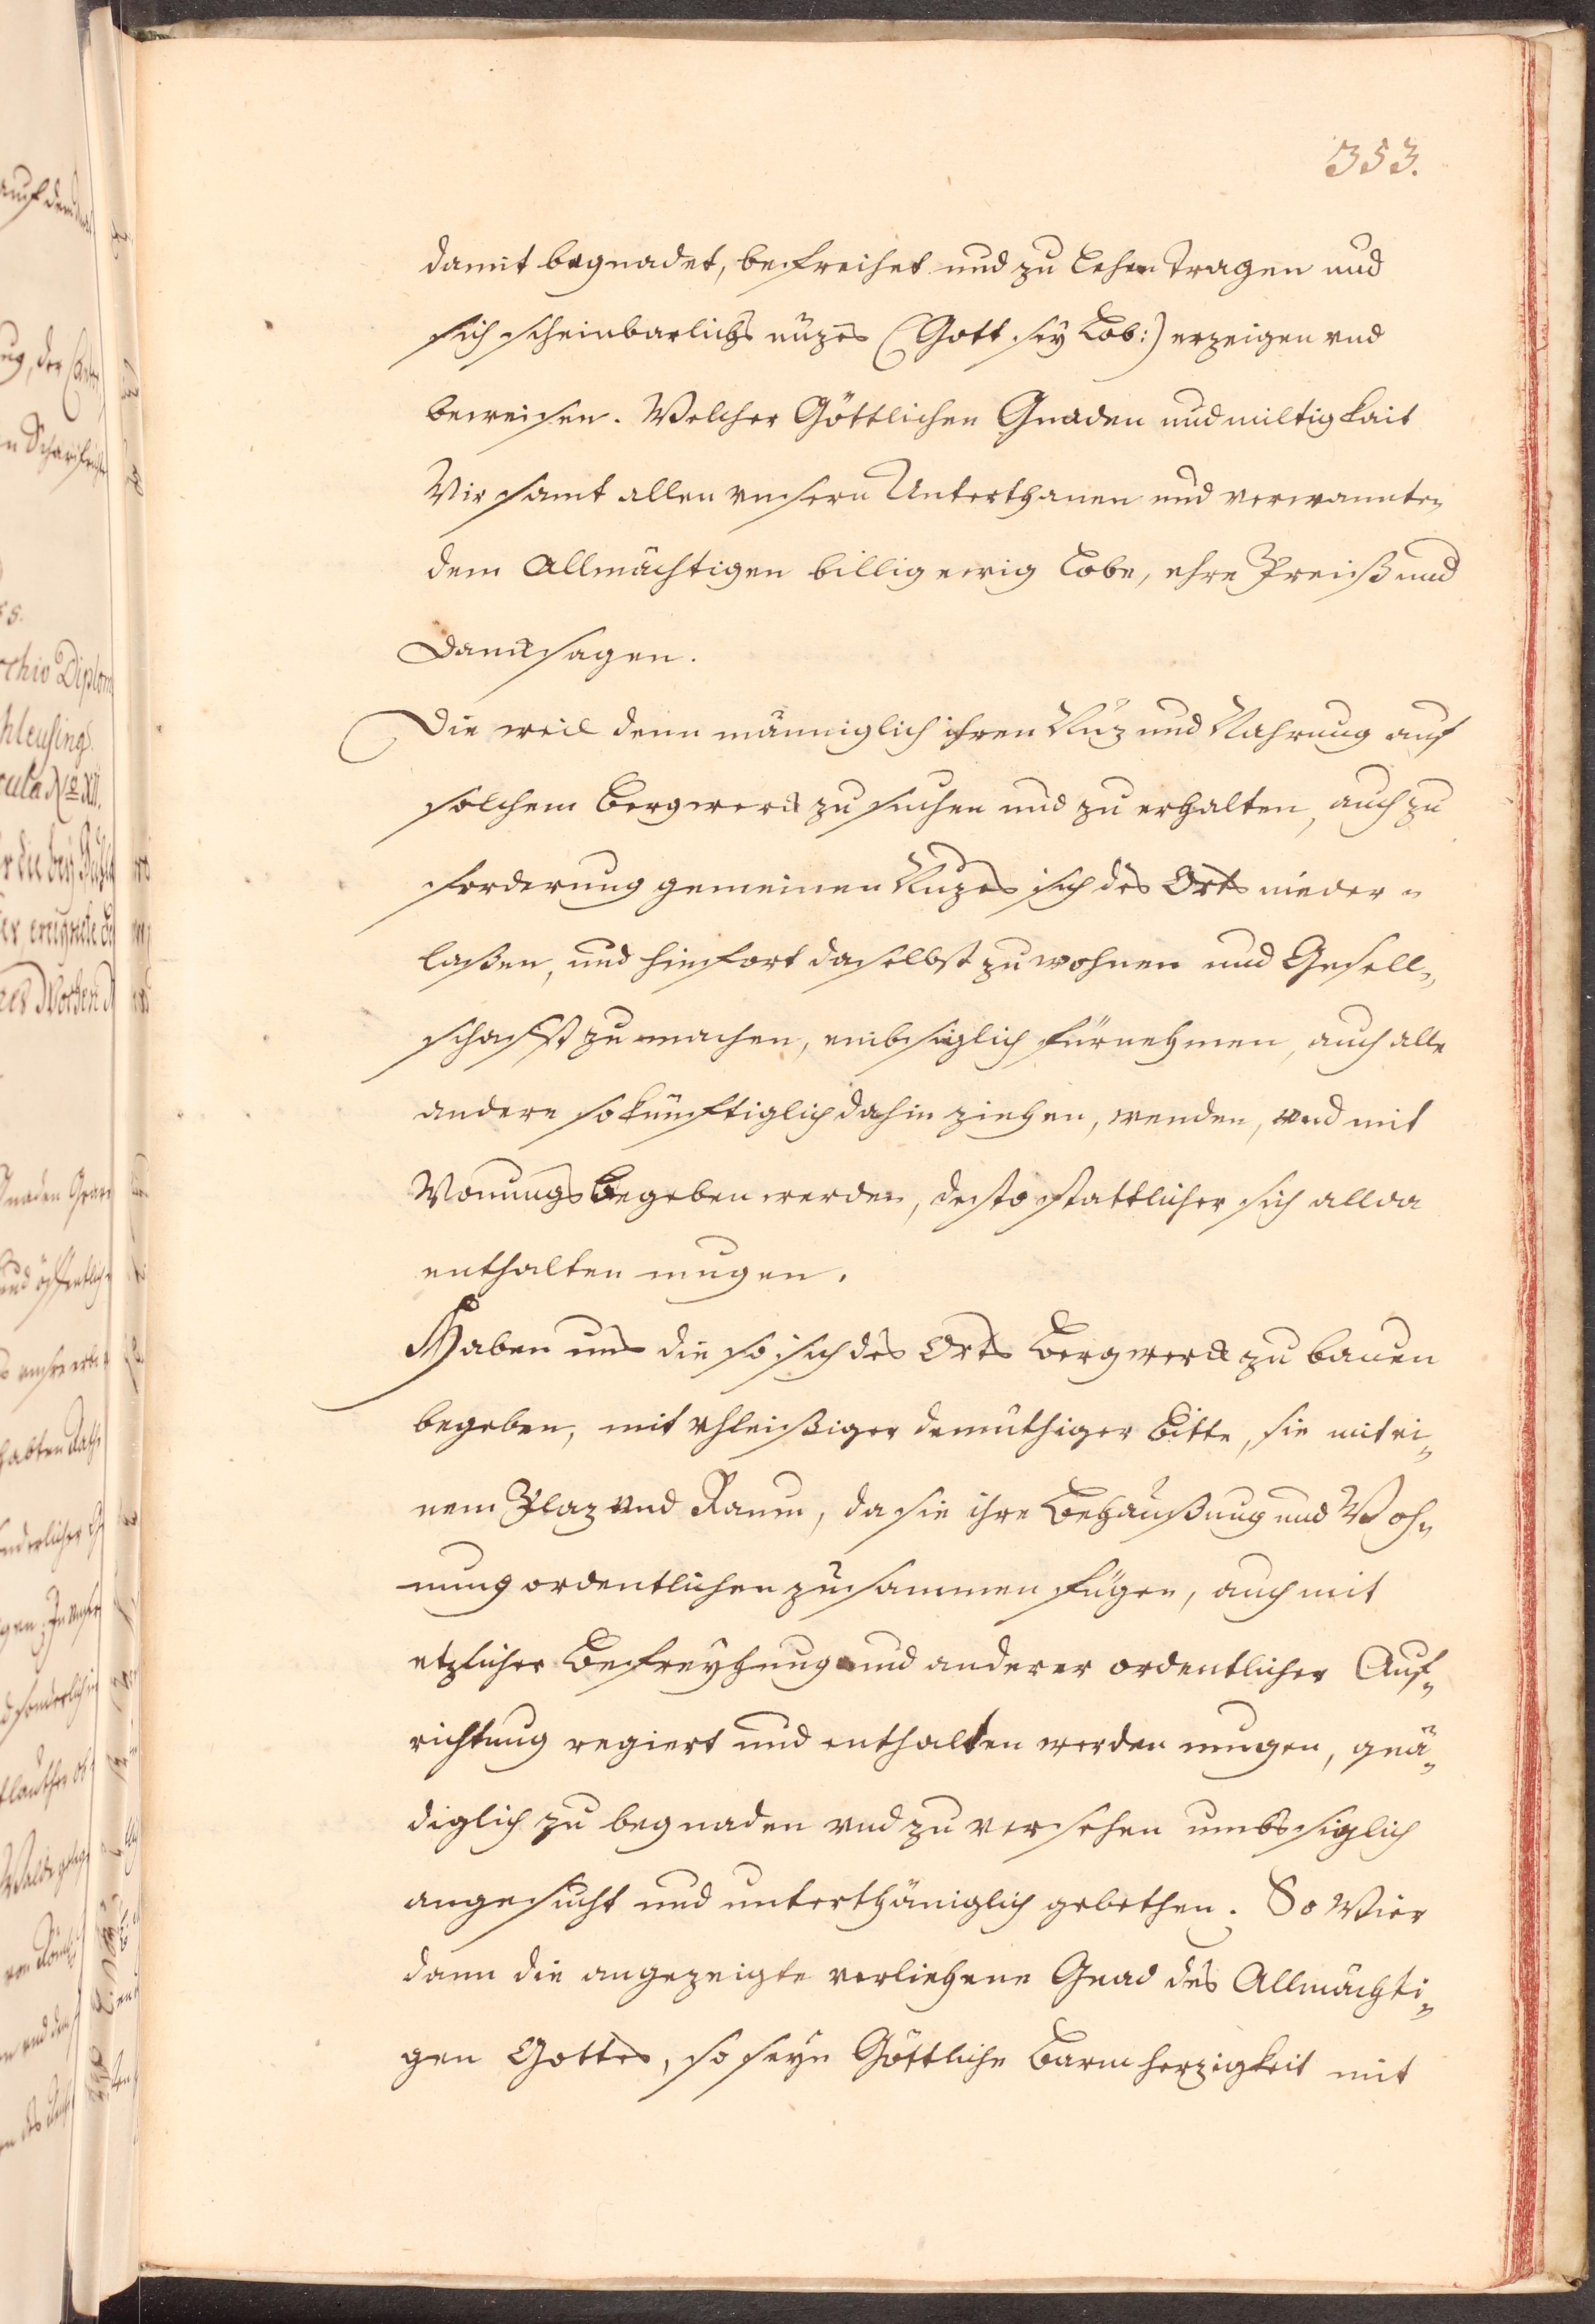 353.
damit begnadet, befreihet und zu Lehen tragen und
sich scheinbarlichs nüzes (Gott sey Lob:) erzeigen vnd
beweisen. Welcher Göttlichen Gnaden und miltigkait
Wir samt allen vnsern Unterthanen und verwannten
dem Allmächtigen billig ewig Lobe, ehre Preiß und
Danksagen.
Die weil denn männiglich ihren Nuz und Nahrung auf
solchem Bergwerck zu suchen und zu erhalten, auch zu
forderung gemeinen Nuzes sich des Orts nieder-
laßen, und hinfort daselbst zu wohnen und Gesell-
schafft zu machen, embsiglich fürnehmen, auch alle
andere so künfftiglich dahin ziehen, wenden, und mit
Wonungs begeben werden, desto stattlicher sich allda
enthalten mugen.
Haben uns die so sich des Orts Bergwerck zu bauen
begeben, mit vhleißiger demüthiger Bitte, sie mit ei-
nem Plaz und Raum, da sie ihre Behaußung und Woh-
nung ordentlichen zusammen fügen, auch mit
etzlicher Befreyhung und anderer ordentlicher Auf-
richtung regiert und enthalten werden mugen, gnä-
diglich zu begnaden vnd zu versehen umbsiglich
angesucht und unterthäniglich gebethen. So Wier
dann die angezeigte verliehene Gnad des Allmächti-
gen Gottes, so seyn Göttliche Barmherzigkeit mit